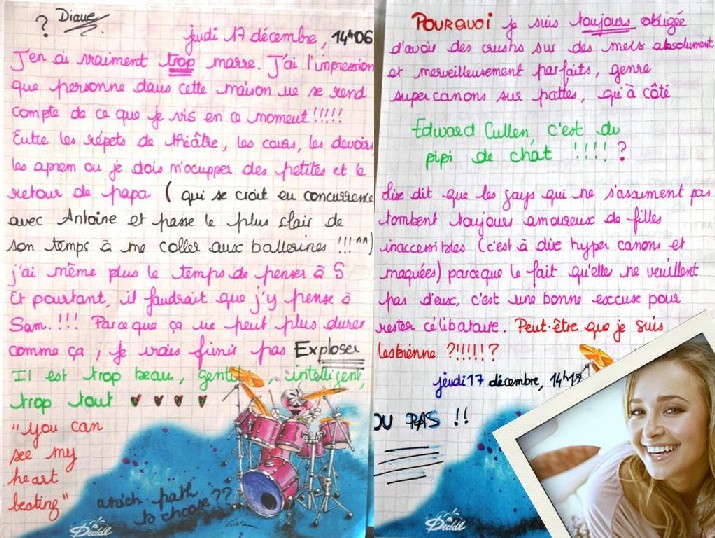 ? Diane
jeudi 17 décembre, 14h06
J'en ai vraiment trop marre. J'ai l'impression
que personne dans cette maison ne se rend
compte de ce que je vis en ce moment !!!!!
Entre les répets de théâtre, les cours, les devoirs
les aprem ou je dois m'occuper des petites et le
retour de papa ( qui se croit en concurrence
avec Antoine et passe le plus clair de
son temps à me coller aux ballerines !!! ^^)
j'ai même plus le temps de penser à S
Et pourtant, il faudrait que j'y pense à
Sam. !!! Parce que ça ne peut plus durer
comme ça, je vais finir pas Exploser
Il est trop beau, gentil, intelligent,
trop tout ♥ ♥ ♥ ♥
"you can
see my
heart
beating"
which path
to choose ??
Diddl
POURQUOI je suis toujours obligée
d'avoir des crushs sur des mecs absolument
et merveilleusement parfaits, genre
super canons sur pattes, qu'à côté
Edward Cullen, c'est du
pipi de chat !!!! ?
dit que les gays qui ne s'assument pas
tombent toujours amoureux de filles
inaccessibles (c'est à dire hyper canons et
maquées) parce que le fait qu'elles ne veuillent
pas d'eux, c'est une bonne excuse pour
rester célibataire. Peut-être que je suis
lesbienne ?!!!!!?
jeudi 17 décembre, 14h
OU PAS !!
Diddl